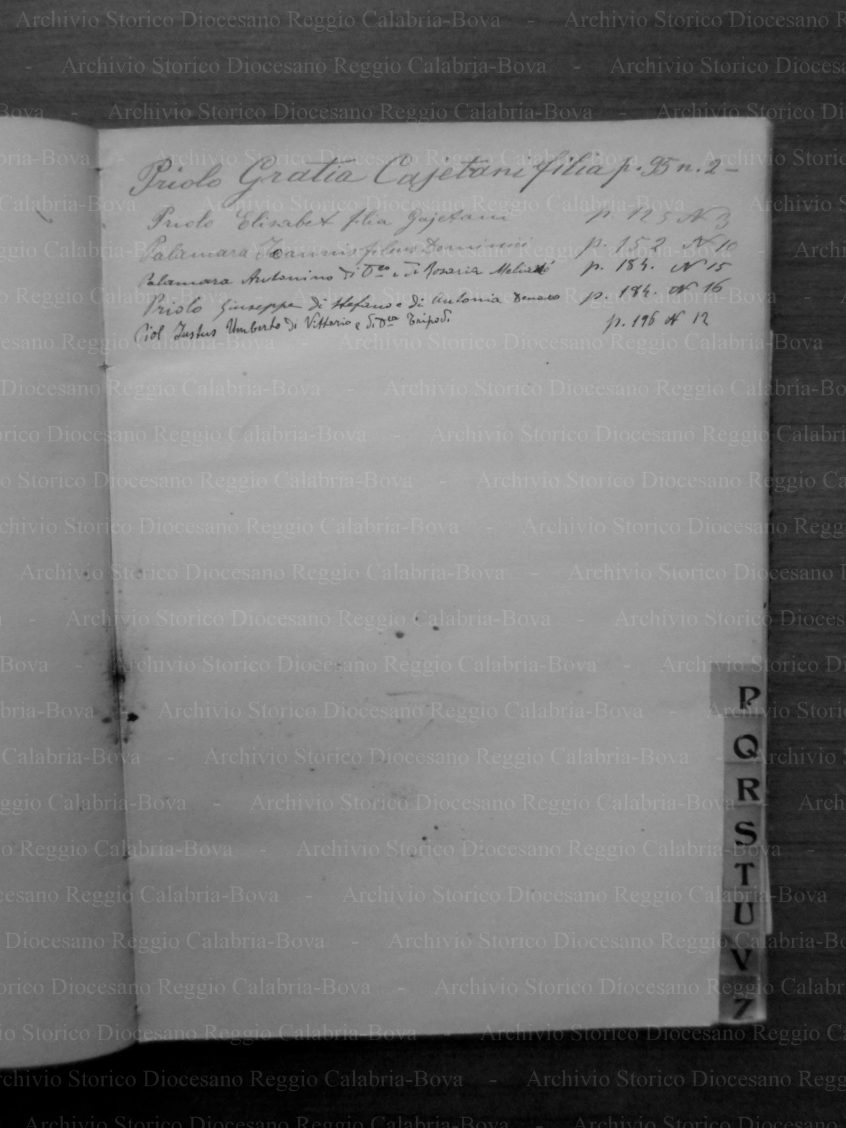 Priolo Gratia Cajetani filia p. 95 n. 2 –
Priolo Elisabet filia Gajetani p. 125 N 3
Palamara Joannis filius Dominici p. 152 N 10
Palamara Antonino di D.co e di Rosaria p. 184. N 15
Priolo Giuseppe di Stefano e di Antonia p. 184. N 16
Justus Umberto di Vittorio e di D.ca Tripodi p. 196 N 12
P
Q
R
S
T
U
V
Z
Archivio Storico Diocesano Reggio Calabria-Bova